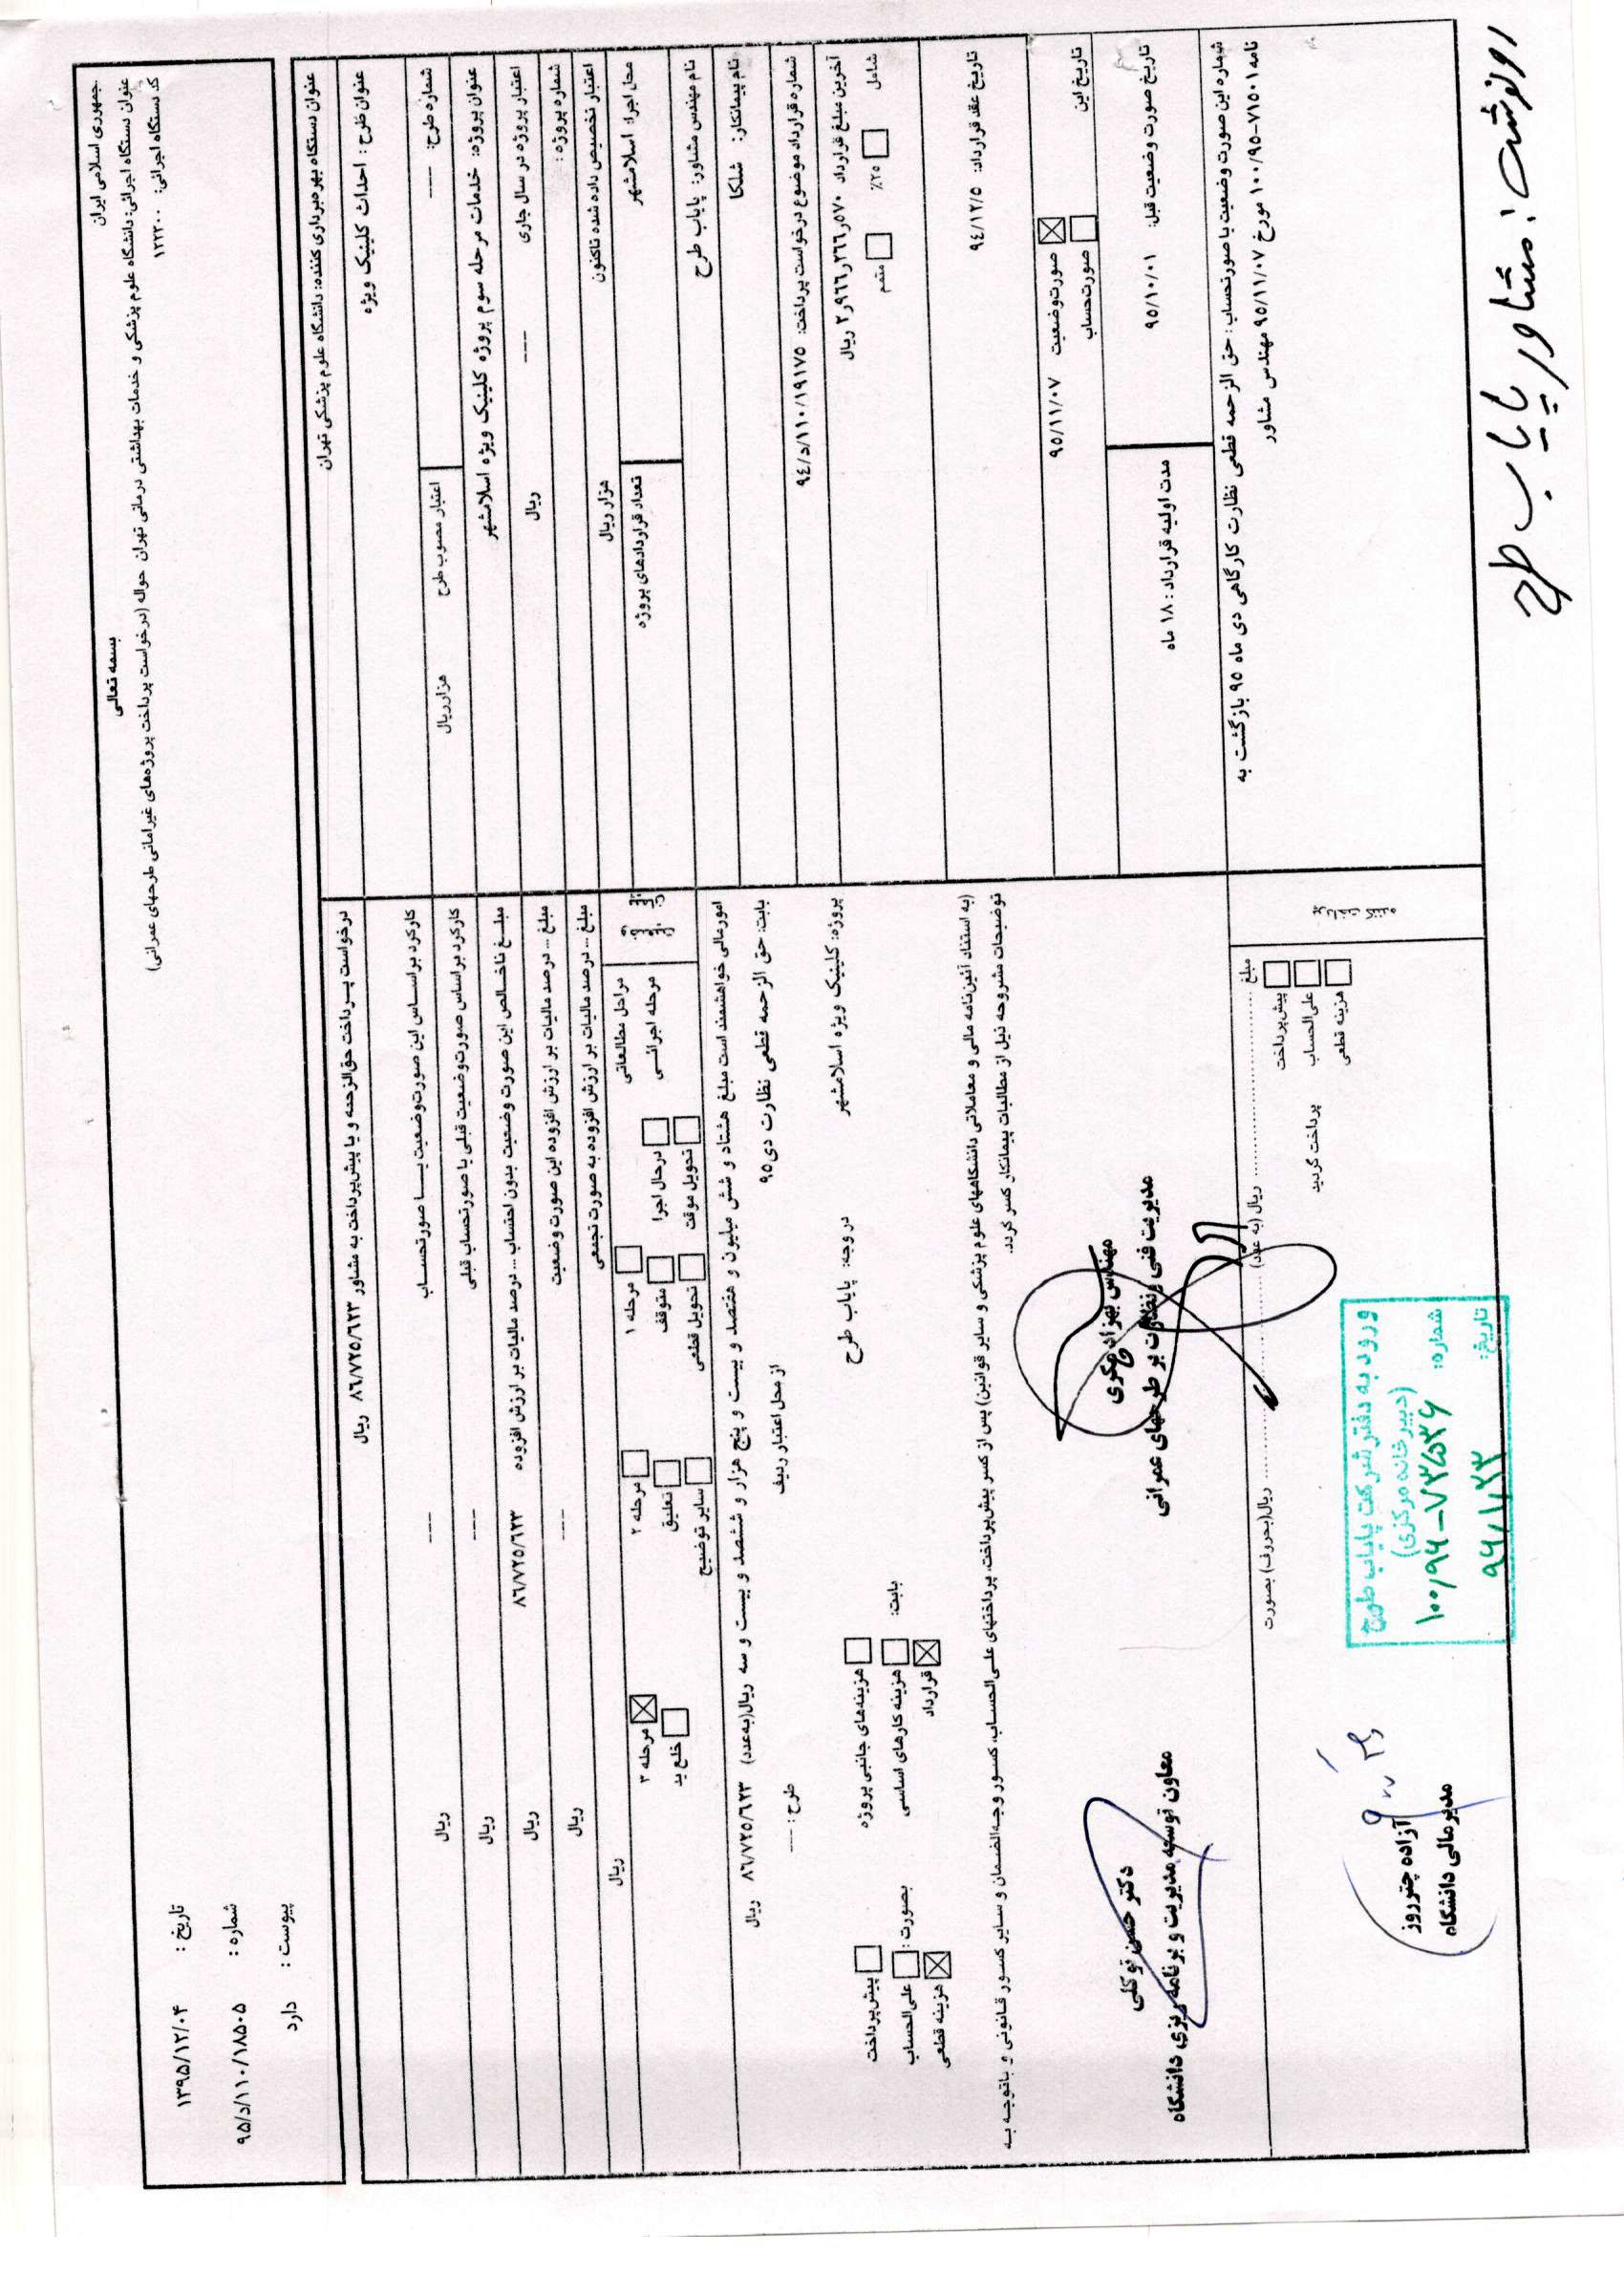 بسمه تعالی
جمهوری اسلامی ایران
عنوان دستگاه اجرائی: دانشگاه علوم پزشکی و خدمات بهداشتی درمانی تهران حواله (درخواست پرداخت پروژه‌های غیرامانی طرحهای عمرانی)
کد دستگاه اجرائی: ۱۲۲۳۰۰
تاریخ : ۱۳۹۵/۱۲/۰۴
شماره : ۹۵/د/۱۱۰/۱۸۵۰۵
پیوست : دارد
عنوان دستگاه بهره‌برداری کننده: دانشگاه علوم پزشکی تهران
عنوان طرح : احداث کلینیک ویژه
شماره طرح: ----
اعتبار مصوب طرح هزار ریال
عنوان پروژه: خدمات مرحله سوم پروژه کلینیک ویژه اسلامشهر
اعتبار پروژه در سال جاری ---- ریال
شماره پروژه :
اعتبار تخصیص داده شده تاکنون هزار ریال
محل اجرا: اسلامشهر
تعداد قراردادهای پروژه
نام مهندس مشاور: پایاب طرح
نام پیمانکار: شلکا
شماره قرارداد موضوع درخواست پرداخت: ۹۴/د/۱۱۰/۱۹۱۷۵
آخرین مبلغ قرارداد ۲٫۹۶۶٫۲۶۶٫۵۷۰ ریال
شامل ۲۵٪ متمم
تاریخ عقد قرارداد: ۹۴/۱۲/۵
تاریخ این صورت‌وضعیت ۹۵/۱۱/۰۷
صورت‌حساب
تاریخ صورت وضعیت قبل: ۹۵/۱۰/۰۱
مدت اولیه قرارداد : ۱۸ ماه
شماره این صورت وضعیت یا صورتحساب : حق الزحمه قطعی نظارت کارگاهی دی ماه ۹۵ بازگشت به
نامه ۷۱۵۰۱-۱۰۰/۹۵ مورخ ۹۵/۱۱/۰۷ مهندس مشاور
درخواست پرداخت حق‌الزحمه و یا پیش‌پرداخت به مشاور ۸۶/۷۲۵/۶۲۳ ریال
کارکرد براساس این صورت‌وضعیت یا صورتحساب --- ریال
کارکرد براساس صورت‌وضعیت قبلی یا صورتحساب قبلی --- ریال
مبلغ ناخالص این صورت وضعیت بدون احتساب ... درصد مالیات بر ارزش افزوده ۸۶/۷۲۵/۶۲۳ ریال
مبلغ ... درصد مالیات بر ارزش افزوده این صورت وضعیت --- ریال
مبلغ ... درصد مالیات بر ارزش افزوده به صورت تجمعی ریال
مراحل مطالعاتی مرحله ۱ مرحله ۲ مرحله ۳
مرحله اجرائی درحال اجرا متوقف تعلیق خلع ید
تحویل موقت تحویل قطعی سایر توضیح
امورمالی خواهشمند است مبلغ هشتاد و شش میلیون و هفتصد و بیست و پنج هزار و ششصد و بیست و سه ریال(به‌عدد) ۸۶/۷۲۵/۶۲۳ ریال
بابت: حق الزحمه قطعی نظارت دی۹۵ از محل اعتبار ردیف طرح : ---
پروژه: کلینیک ویژه اسلامشهر در وجه: پایاب طرح
بابت: هزینه‌های جانبی پروژه هزینه کارهای اساسی قرارداد
بصورت : پیش‌پرداخت علی‌الحساب هزینه قطعی
(به استناد آئین‌نامه مالی و معاملاتی دانشگاههای علوم پزشکی و سایر قوانین) پس از کسر پیش‌پرداخت، پرداختهای علی‌الحساب، کسور وجه‌الضمان و سایر کسور قانونی و باتوجه به
توضیحات مشروحه ذیل از مطالبات پیمانکار کسر گردد.
مهندس بهزاد فکری
مدیریت فنی و نظارت بر طرحهای عمرانی
دکتر حسن توکلی
معاون توسعه مدیریت و برنامه ریزی دانشگاه
پرداخت کننده
مبلغ ........ ریال (به عدد) ........ ریال(بحروف) بصورت
پیش‌پرداخت
علی‌الحساب پرداخت گردید
هزینه قطعی
ورود به دفتر شرکت پایاب طرح
(دبیرخانه مرکزی)
شماره: ۱۰۰٫۹۶-۷۳۵۳۶
تاریخ: ۹۶/۱/۲۳
آزاده چترروز
مدیر مالی دانشگاه
رونوشت : مشاور پایاب طرح